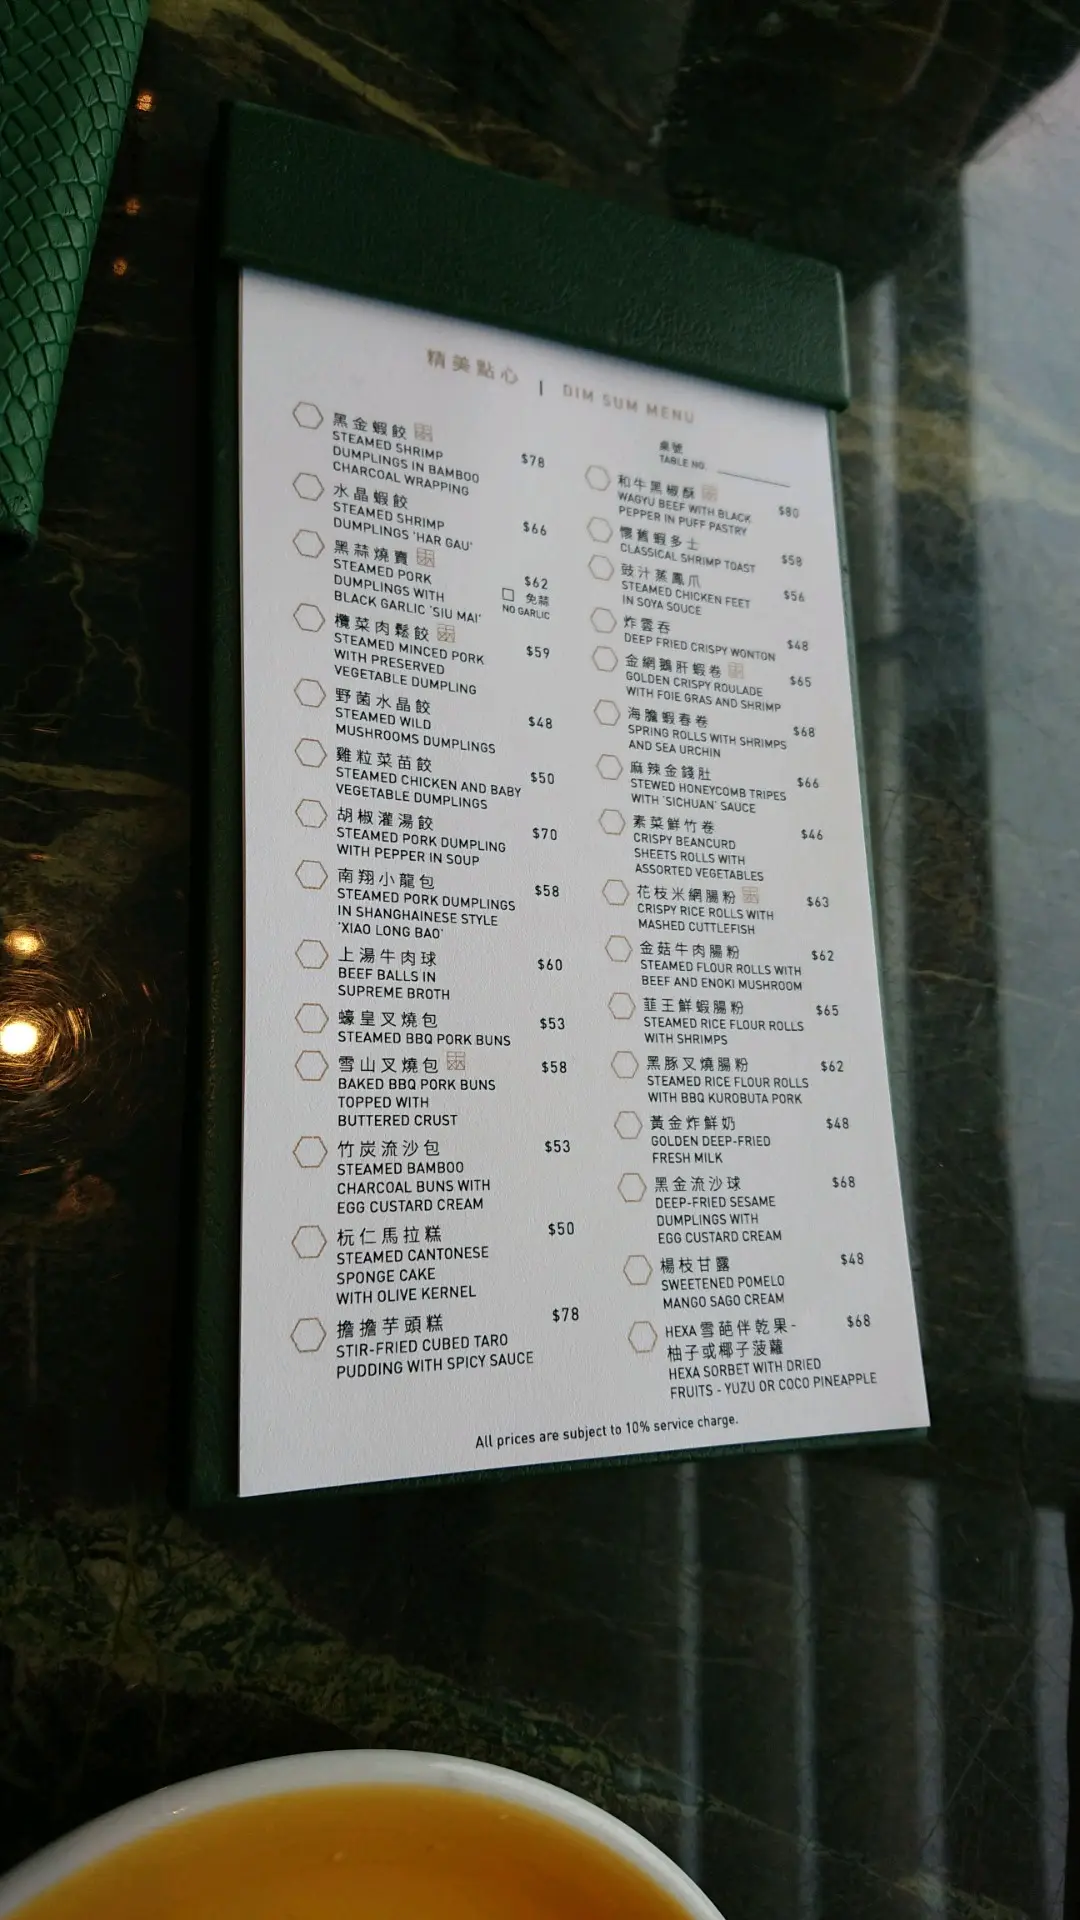 精美點心 | DIM SUM MENU
黑金蝦餃
STEAMED SHRIMP
DUMPLINGS IN BAMBOO
CHARCOAL WRAPPING
$78
水晶蝦餃
STEAMED SHRIMP
DUMPLINGS 'HAR GAU'
$66
黑蒜燒賣
STEAMED PORK
DUMPLINGS WITH
BLACK GARLIC 'SIU MAI'
$62
免蒜
NO GARLIC
欖菜肉鬆餃
STEAMED MINCED PORK
WITH PRESERVED
VEGETABLE DUMPLING
$59
野菌水晶餃
STEAMED WILD
MUSHROOMS DUMPLINGS
$48
雞粒菜苗餃
STEAMED CHICKEN AND BABY
VEGETABLE DUMPLINGS
$50
胡椒灌湯餃
STEAMED PORK DUMPLING
WITH PEPPER IN SOUP
$70
南翔小龍包
STEAMED PORK DUMPLINGS
IN SHANGHAINESE STYLE
'XIAO LONG BAO'
$58
上湯牛肉球
BEEF BALLS IN
SUPREME BROTH
$60
蠔皇叉燒包
STEAMED BBQ PORK BUNS
$53
雪山叉燒包
BAKED BBQ PORK BUNS
TOPPED WITH
BUTTERED CRUST
$58
竹炭流沙包
STEAMED BAMBOO
CHARCOAL BUNS WITH
EGG CUSTARD CREAM
$53
杬仁馬拉糕
STEAMED CANTONESE
SPONGE CAKE
WITH OLIVE KERNEL
$50
擔擔芋頭糕
STIR-FRIED CUBED TARO
PUDDING WITH SPICY SAUCE
$78
桌號
TABLE NO.
和牛黑椒酥
WAGYU BEEF WITH BLACK
PEPPER IN PUFF PASTRY
$80
懷舊蝦多士
CLASSICAL SHRIMP TOAST
$58
豉汁蒸鳳爪
STEAMED CHICKEN FEET
IN SOYA SOUCE
$56
炸雲吞
DEEP FRIED CRISPY WONTON
$48
金網鵝肝蝦卷
GOLDEN CRISPY ROULADE
WITH FOIE GRAS AND SHRIMP
$65
海膽蝦春卷
SPRING ROLLS WITH SHRIMPS
AND SEA URCHIN
$68
麻辣金錢肚
STEWED HONEYCOMB TRIPES
WITH 'SICHUAN' SAUCE
$66
素菜鮮竹卷
CRISPY BEANCURD
SHEETS ROLLS WITH
ASSORTED VEGETABLES
$46
花枝米網腸粉
CRISPY RICE ROLLS WITH
MASHED CUTTLEFISH
$63
金菇牛肉腸粉
STEAMED FLOUR ROLLS WITH
BEEF AND ENOKI MUSHROOM
$62
韮王鮮蝦腸粉
STEAMED RICE FLOUR ROLLS
WITH SHRIMPS
$65
黑豚叉燒腸粉
STEAMED RICE FLOUR ROLLS
WITH BBQ KUROBUTA PORK
$62
黃金炸鮮奶
GOLDEN DEEP-FRIED
FRESH MILK
$48
黑金流沙球
DEEP-FRIED SESAME
DUMPLINGS WITH
EGG CUSTARD CREAM
$68
楊枝甘露
SWEETENED POMELO
MANGO SAGO CREAM
$48
HEXA 雪葩伴乾果-
柚子或椰子菠蘿
HEXA SORBET WITH DRIED
FRUITS - YUZU OR COCO PINEAPPLE
$68
All prices are subject to 10% service charge.